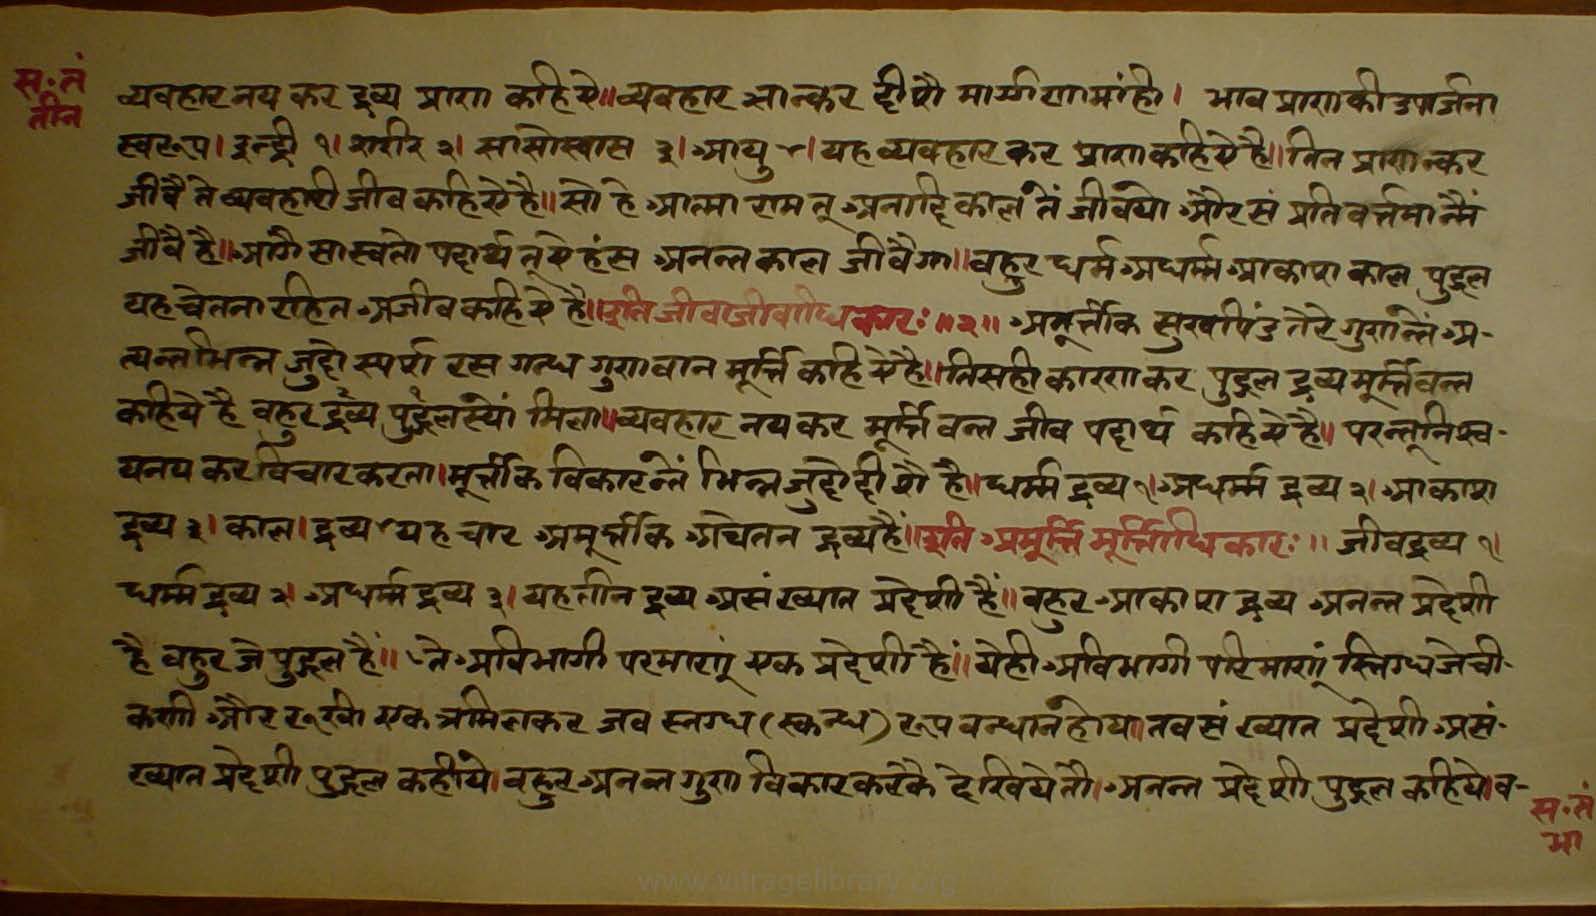 स॰तं
तीन
व्यवहार नय कर द्रव्य प्राण कहिये॥ व्यवहार सान्कर दीषै मार्गणामांही। भाव प्राण की उपार्जना
स्वरूप। इन्द्री १। शरीर २। सासोस्वास ३। आयु ४। यह व्यवहार कर प्राण कहिये है॥ तिन प्राणन्कर
जीवै ते व्यवहारी जीव कहिये है॥ सो हे आत्मा राम तू अनादि काल तें जीवयो और सं प्रति वर्त्तमान्मैं
जीवै है॥ आगै सास्वतो पदार्थ तू ये हंस अनन्त काल जीवैगा॥ बहुर धर्म अधर्म्म आकाश काल पुद्गल
यह चेतना रहित अजीव कहिये है॥ इति जीवाजीवाधिकारः॥२॥ अमूर्त्तिक सुखपिंड तेरे गुणान्तें अ-
त्यन्त भिन्न जुदो स्पर्श रस गन्ध गुणवान मूर्त्ति कहिये है॥ तिसही कारण कर पुद्गल द्रव्य मूर्त्तिवन्त
कहिये है बहुर द्रव्य पुद्गलस्यों मिला॥ व्यवहार नय कर मूर्त्तिवन्त जीव पदार्थ कहिये है॥ परन्तू निश्च-
य नय कर विचार करता। मूर्त्तिक विकारन्तें भिन्न जुदो दीशै है॥ धर्म्म द्रव्य १। अधर्म्म द्रव्य २। आकाश
द्रव्य ३। काल। द्रव्य ४ यह चार अमूर्त्तिक अचेतन द्रव्य हैं॥ इति अमूर्त्ति मूर्त्तिाधिकारः॥ जीवद्रव्य १।
धर्म्म द्रव्य २। अधर्म्म द्रव्य ३। यह तीन द्रव्य असंख्यात प्रदेशी हैं॥ बहुर आकाश द्रव्य अनन्त प्रदेशी
है बहुर जे पुद्गल हैं॥ ते अविभागी परमाणूं एक प्रदेशी है॥ येही अविभागी परिमाणूं स्निग्ध जे ची-
कणी और रूखी एकत्र मिलकर जव स्नग्ध (स्कन्ध) रूप वन्धान होय॥ तव संख्यात प्रदेशी असं-
ख्यात प्रदेशी पुद्गल कहीये। वहुर अनन्त गुण विकार करकै देखियेतौ। अनन्त प्रदेशी पुद्गल कहिये। व-
स॰तं
भा
www.vitragelibrary.org